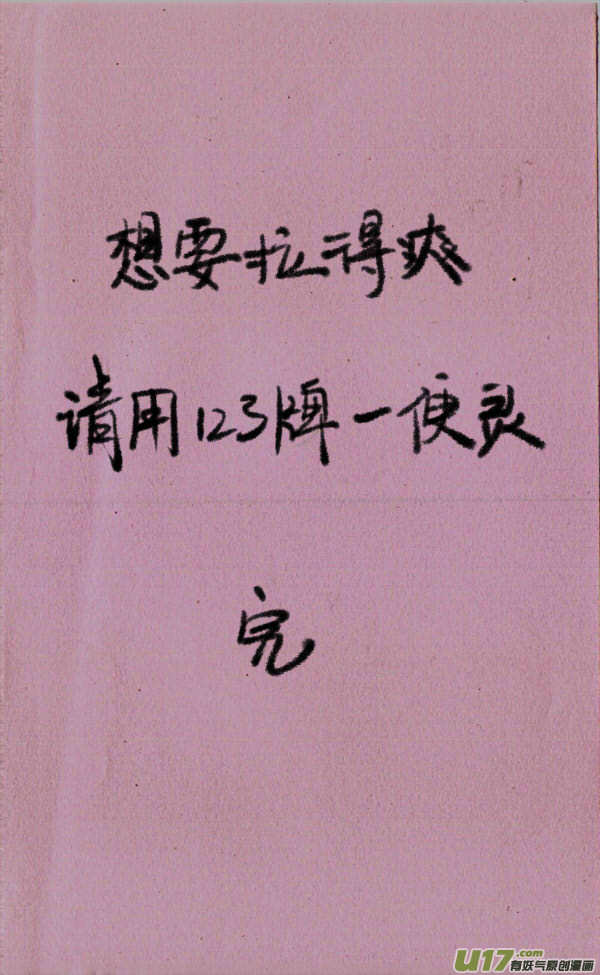 想要拉得爽
请用123牌一便灵
完
U17.com
有妖气原创漫画